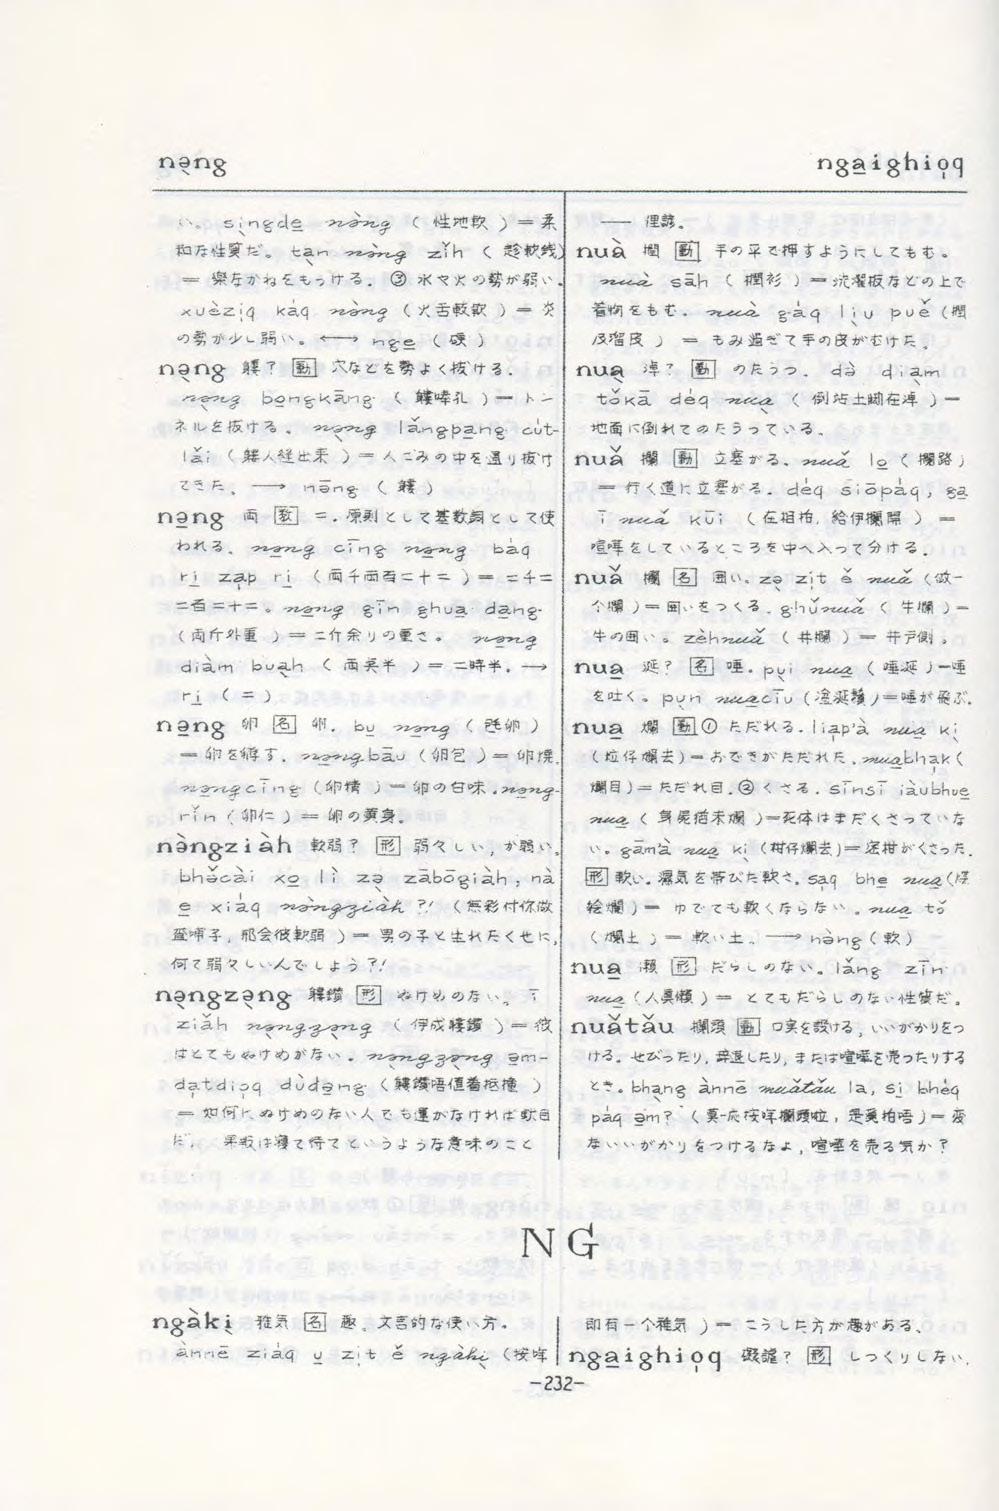 nə̠ng
ngaighio̩q
い。singdē nə̀ng（性地軟）＝柔
和な性質だ。tan nə̀ng zi̋h（趁軟銭）
＝楽なかねをもうける。③水や火の勢が弱い。
xuèziq káq nə̀ng（火舌較軟）＝炎
の勢が少し弱い。─→ nge（硬）
nə̩ng 軁？[動] 穴などを勢よく抜ける。
nə̩ng bongkāng（軁嗙孔）＝トン
ネルを抜ける。nə̩ng lǎngpang cút-
lǎi（軁人縫出来）＝人ごみの中を通り抜け
てきた。─→ nə̄ng（軁）
nə̠ng 両 [数] 二。原則として基数詞として使
われる。nə̠ng cīng nə̠ng báq
rì za̍p rì（両千両百二十二）＝二千二
二百二十二。nə̠ng gīn ghua̠ da̠ng
（両斤外重）＝二斤余りの重さ。nə̠ng
diàm bua̠h（両点半）＝二時半。─→
rì（二）
nə̠ng 卵 [名] 卵。bu̠ nə̠ng（孵卵）
＝卵を孵す。nə̠ngbāu（卵包）＝卵焼。
nə̠ngcīng（卵精）＝卵の白味。nə̠ng-
rǐn（卵仁）＝卵の黄身。
nə̀ngziàh 軟弱？[形] 弱々しい，か弱い。
bhə̌cài xo̠ lì zə̩ zābōgiàh, nà
e̠ xiáq nə̀ngziàh?!（無彩付你做
査哺子，那会彼軟弱）＝男の子と生れたくせに，
何て弱々しい人でしょう?!
nə̩ngzə̩ng 軁鑽 [形] ぬけめのない。ī
ziǎh nə̩ngzə̩ng（伊成軁鑽）＝彼
はとてもぬけめがない。nə̩ngzə̩ng əm-
da̍tdio̍q dùda̠ng（軁鑽唔值着抵撞）
＝如何にぬけめのない人でも運がなければ駄目
だ，果報は寝て待てというような意味のこと
── 俚諺。
nuà 撋 [動] 手の平で押すようにしてもむ。
nuà sāh（撋衫）＝洗濯板などの上で
着物をもむ。nuà gáq liu puě（撋
及瑠皮）＝もみ過ぎて手の皮がむけた。
nua̩ 淖？[動] のたうつ。dà diàm
tǒkā déq nua̩（倒坫土脚在淖）＝
地面に倒れてのたうっている。
nuǎ 攔 [動] 立塞がる。nuǎ lo̠（攔路）
＝行く道に立塞がる。déq siōpáq, ga̠
ī nuǎ kūi（在相拍，給伊攔開）＝
喧嘩をしているところを中へ入って分ける。
nuǎ 欄 [名] 囲い。zə̩ zi̍t ě nuǎ（做一
个欄）＝囲いをつくる。ghǔnuǎ（牛欄）＝
牛の囲い。zèhnuǎ（井欄）＝井戸側。
nua̠ 涎？[名] 唾。pu̩i nua̠（唾涎）＝唾
を吐く。pun nua̠ciu（歕涎鬚）＝唾が飛ぶ。
nua̠ 爛 [動] ①ただれる。lia̍p'à nua̠ ki̩
（粒仔爛去）＝おできがただれた。nua̠bha̍k（
爛目）＝ただれ目。②くさる。sīnsī iàubhue̠
nua̠（身屍猶未爛）＝死体はまだくさっていな
い。gāmà nua̠ ki̩（柑仔爛去）＝蜜柑がくさった。
[形] 軟い。湿気を帯びた軟さ。sa̍q bhe̠ nua̠（煠
𣍐爛）＝ゆでても軟くならない。nua̠ tǒ
（爛土）＝軟い土。─→ nə̀ng（軟）
nua̠ 瀬 [形] だらしのない。lǎng zīn
nua̠（人真懶）＝とてもだらしのない性質だ。
nuǎtǎu 攔頭 [動] 口実を設ける，いいがかりをつ
ける。せびったり，辞退したり，または喧嘩を売ったりする
とき。bha̍ng ànnē nuǎtǎu la, si̠ bhéq
páq əm?（莫応按哖攔頭啦，是卜拍唔）＝変
ないいがかりをつけるなよ，喧嘩を売る気か？
NG
ngàki̩ 雅気 [名] 趣。文言的な使い方。
ànnē ziáq u̠ zi̍t ě ngàki̩（按哖
即有一个雅気）＝こうした方が趣がある。
nga̠ighio̍q 礙謔？[形] しっくりしない，
－232－